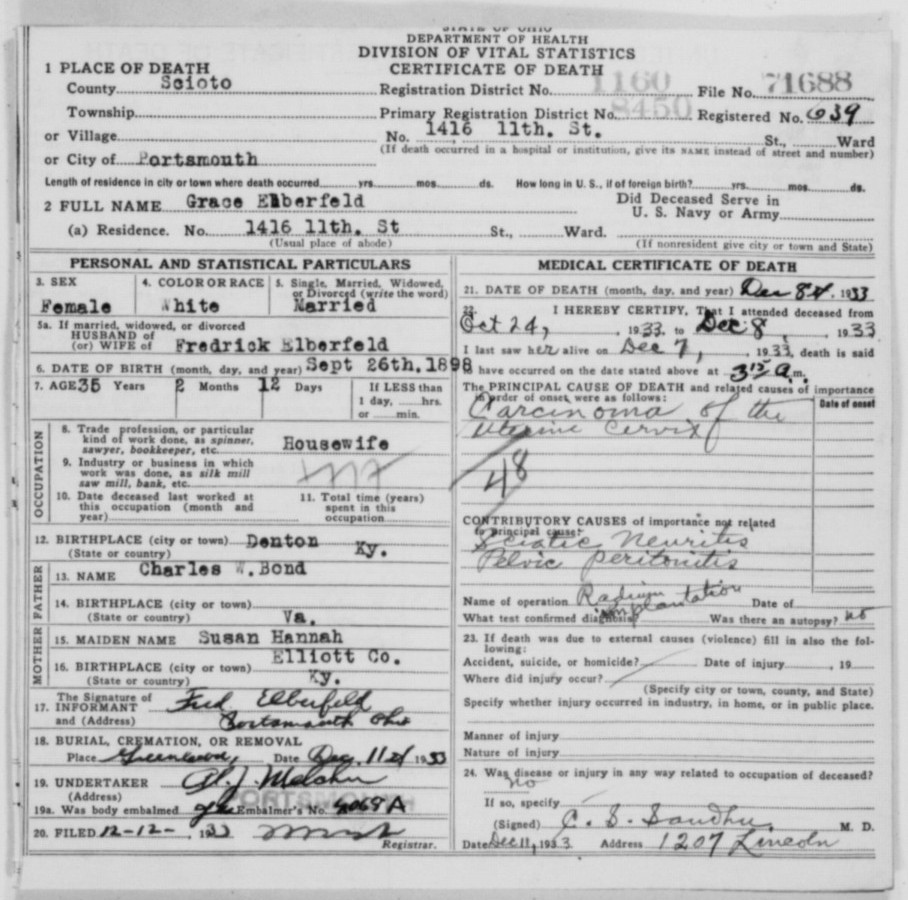 STATE OF OHIO
DEPARTMENT OF HEALTH
DIVISION OF VITAL STATISTICS
CERTIFICATE OF DEATH
1 PLACE OF DEATH
County Scioto Registration District No. 1160 File No. 71688
Township Primary Registration District No. 8450 Registered No. 639
or Village No. 1416 11th. St. St., Ward
or City of Portsmouth (If death occurred in a hospital or institution, give its NAME instead of street and number)
Length of residence in city or town where death occurred yrs. mos. ds. How long in U. S., if of foreign birth? yrs. mos. ds.
2 FULL NAME Grace Elberfeld Did Deceased Serve in U. S. Navy or Army
(a) Residence. No. 1416 11th. St St., Ward.
(Usual place of abode) (If nonresident give city or town and State)
PERSONAL AND STATISTICAL PARTICULARS
3. SEX Female
4. COLOR OR RACE White
5. Single, Married, Widowed, or Divorced (write the word) Married
5a. If married, widowed, or divorced
HUSBAND of
(or) WIFE of Fredrick Elberfeld
6. DATE OF BIRTH (month, day, and year) Sept 26th. 1898
7. AGE 35 Years 2 Months 12 Days If LESS than 1 day, hrs. or min.
OCCUPATION
8. Trade profession, or particular
kind of work done, as spinner,
sawyer, bookkeeper, etc. Housewife
9. Industry or business in which
work was done, as silk mill
saw mill, bank, etc.
10. Date deceased last worked at
this occupation (month and
year)
11. Total time (years)
spent in this
occupation
12. BIRTHPLACE (city or town) Denton
(State or country) Ky.
FATHER
13. NAME Charles W. Bond
14. BIRTHPLACE (city or town)
(State or country) Va.
MOTHER
15. MAIDEN NAME Susan Hannah
16. BIRTHPLACE (city or town) Elliott Co.
(State or country) Ky.
17. The Signature of INFORMANT Fred Elberfeld
and (Address) Portsmouth Ohio
18. BURIAL, CREMATION, OR REMOVAL
Place Greenlawn, Date Dec 11th 1933
19. UNDERTAKER
(Address) PORTSMOUTH
19a. Was body embalmed yes Embalmer's No. 4068A
20. FILED 12-12-, 1933
Registrar.
MEDICAL CERTIFICATE OF DEATH
21. DATE OF DEATH (month, day, and year) Dec 8th, 1933
22. I HEREBY CERTIFY, That I attended deceased from
Oct 24, , 1933, to Dec 8, , 1933
I last saw her alive on Dec 7, , 1933, death is said
to have occurred on the date stated above at 3 15 a.m.
The PRINCIPAL CAUSE OF DEATH and related causes of importance
in order of onset were as follows: Date of onset
Carcinoma of the
Uterine Cervix
48
CONTRIBUTORY CAUSES of importance not related
to principal cause:
Sciatic Neuritis
Pelvic peritonitis
Name of operation Radium implantation Date of
What test confirmed diagnosis Was there an autopsy? no
23. If death was due to external causes (violence) fill in also the following:
Accident, suicide, or homicide? Date of injury , 19
Where did injury occur?
(Specify city or town, county, and State)
Specify whether injury occurred in industry, in home, or in public place.
Manner of injury
Nature of injury
24. Was disease or injury in any way related to occupation of deceased?
No
If so, specify
(Signed) M. D.
Date Dec 11, 1933 Address 1207 Lincoln